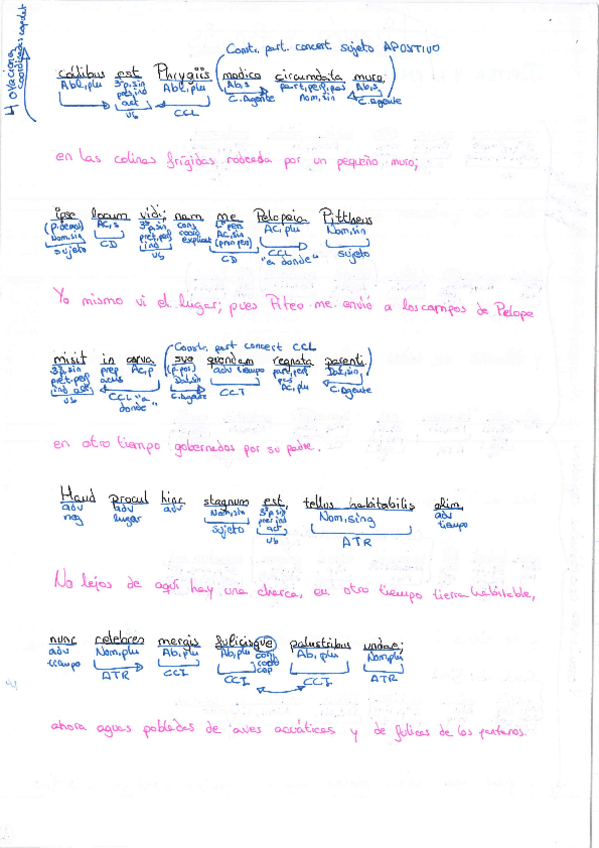 4 oraciona
coordinadas copulat
Constr. part. concert sujeto APOSITIVO
collibus est Phrygiis (modico circumdata muro)
Abl, plu 3ªp, sin Abl, plu Ab, s part, perf, pas Ab, s
pres, ind C. Agente Nom, sin C. agente
act
vb CCL
en las colinas frígidas rodeada por un pequeño muro;
ipse locum vidi; nam me Pelopeia Pittheus
Nom, sin AC, s 3ªp, sin conj 1ª pers AC, plu Nom, sin
pret, perf coord AC, sin
ind explicat (pron pers)
sujeto CD vb CD CCL sujeto
"a donde"
Yo mismo vi el lugar; pues Piteo me envió a los campos de Pelope
(Constr. part concert CCL
misit in arva suo quondam regnata parenti)
3ªp, sin prep AC, p (p. pos) adv tiempo part, perf Dat, sin
pret. perf acus Dat, sin pas
ind act AC, plu
vb CCL "a C. Agente CCT C. Agente
donde"
en otro tiempo gobernados por su padre.
Haud procul hinc stagnum est, tellus habitabilis olim
adv adv adv Nom, sin 3ªp, sin Nom, sing adv
neg lugar pres ind tiempo
act
sujeto vb ATR
No lejos de aquí hay una charca, en otro tiempo tierra habitable,
nunc celebres mergis fulicisque palustribus undae;
adv Nom, plu Ab, plu Ab, plu conj Ab, plu Nom, plu
tiempo coord
cop
ATR CCI CCI CCI ATR
ahora aguas pobladas de aves acuáticas y de fulicas de los pantanos.